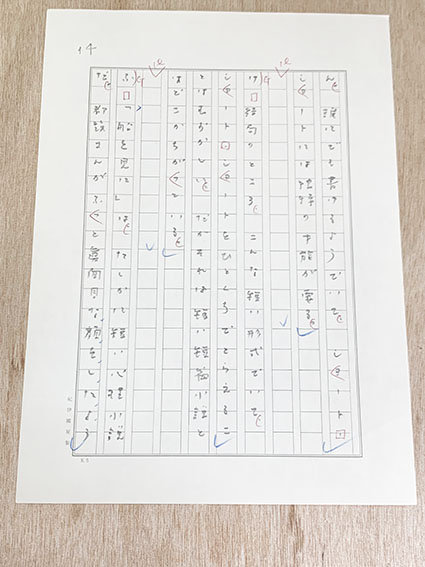 14
ん。誰にでも書けるようでいて、ショート・
ショートには独特の才能が要る。
結局のところ、こんな短い形式でいて、
ショート・ショートをひとくちでとらえるこ
とはむずかしい。だがそれは短い短篇小説と
はどこかちがっている。
「船を見に」は、たしかに短い心理小説
だ。都筑さんがふっと真面目な顔をしたよう
紀伊國屋製